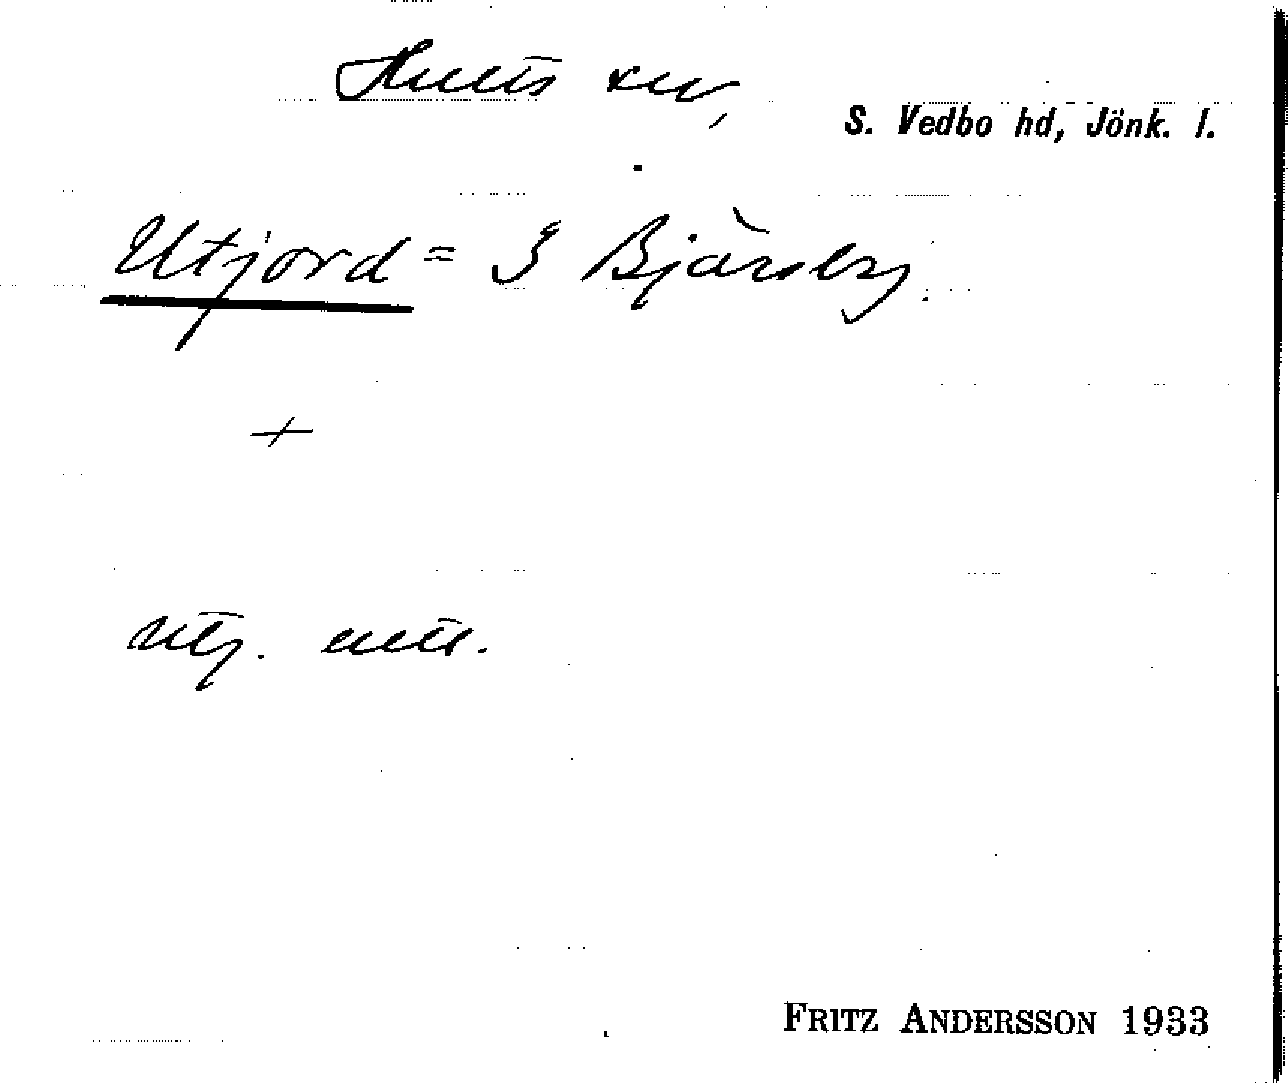 Hults sn,
S. Vedbo hd, Jönk. l.
Utjord = I Bjärsby.
+
utj.
FRITZ ANDERSSON 1933